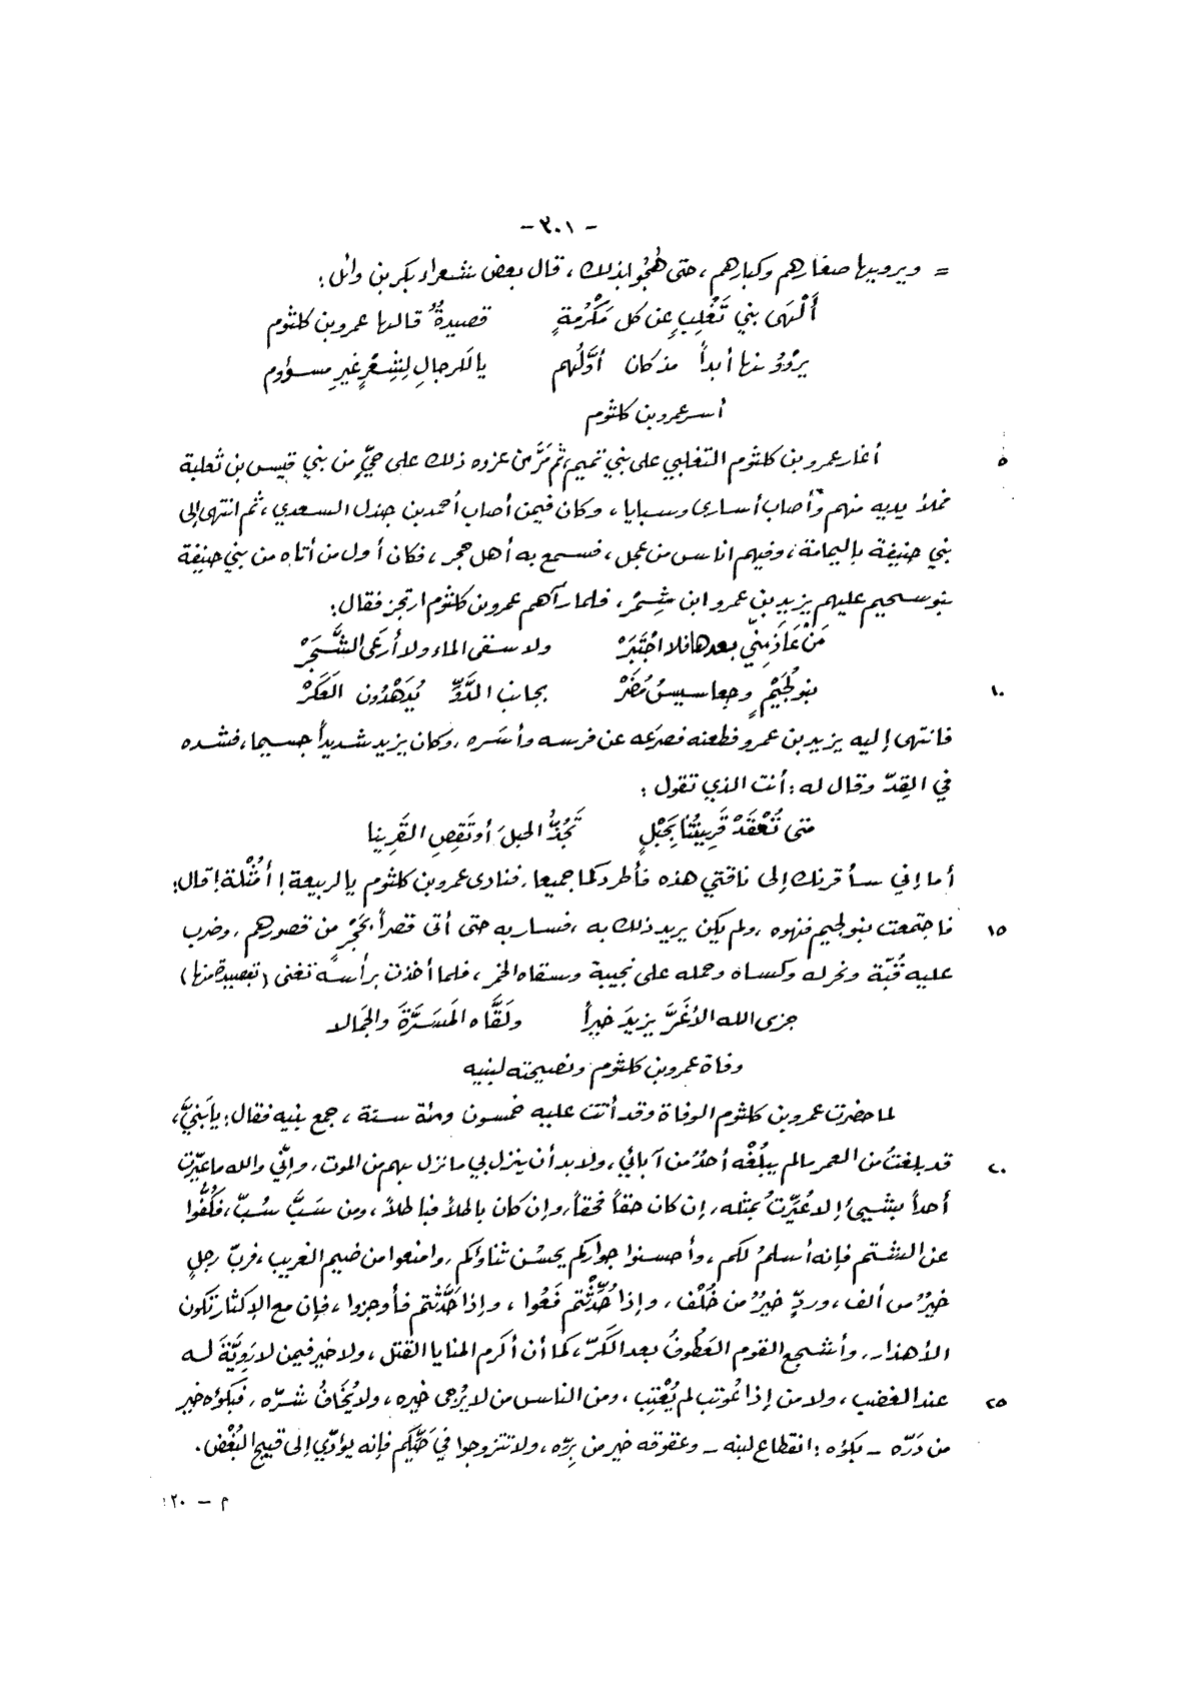 - ٣٠١ -
= ويرويها صغارهم وكبارهم، حتى هُجُوا بذلك، قال بعض شعراء بكر بن وائل:
أَلْهَى بني تَغْلِبٍ عن كل مَكْرُمةٍ قصيدةٌ قالها عمرو بن كلثوم
يرْوُونها أبداً مذ كان أوَّلُهم يالَلرجالِ لِشِعْرٍ غيرِ مسؤوم
أسر عمرو بن كلثوم
٥ أغار عمرو بن كلثوم التغلبي على بني تميم، ثم مَرَّ من غزوه ذلك على حيٍّ من بني قيس بن ثعلبة
فملأ يديه منهم وأصاب أسارى وسبايا، وكان فيمن أصاب أحمد بن جندل السعدي، ثم انتهى إلى
بني حنيفة باليمامة، وفيهم اناس من عجل، فسمع به أهل حجر، فكان أول من أتاه من بني حنيفة
بنو سحيم عليهم يزيد بن عمرو ابن شِمْر، فلما رآهم عمرو بن كلثوم ارتجز فقال:
مَنْ عَاذَ مِنِّي بعدها فلا اجْتَبَرْ ولا سقى الماء ولا أرعَى الشَّجَرْ
١٠ بنو لُجَيْمٍ وجعاسيسُ مُضَرْ بجانب الدَّوِّ يُدَهْدُون العَكَرْ
فانتهى إليه يزيد بن عمرو فطعنه فصرَعه عن فرسه وأسَره، وكان يزيد شديداً جسيما، فشده
في القِدّ وقال له: أنت الذي تقول:
متى تُعْقَدْ قَرِينتُنا بِحَبْلٍ تَجُذُّ الحبلَ أو تَقِصِ القَرِينا
أما إني سأقرنك إلى ناقتي هذه فأطردكما جميعا، فنادى عمرو بن كلثوم يالربيعة! أمُثْلة! قال:
١٥ فاجتمعت بنو لجيم فنهوه، ولم يكن يريد ذلك به، فسار به حتى أتى قصراً بحَجْرٍ من قصورهم، وضرب
عليه قُبّة ونحر له وكساه وحمله على نجيبة وسقاه الخمر، فلما أخذت برأسه تغنى (بقصيدة منها)
جزى الله الأغَرَّ يزيدَ خيراً ولَقَّاه المَسَرَّةَ والجَمالا
وفاة عمرو بن كلثوم ونصيحته لبنيه
لما حضرت عمرو بن كلثوم الوفاة وقد أتت عليه خمسون ومئة سنة، جمع بنيه فقال: يا بَنيَّ،
٢٠ قد بلغتُ من العمر مالم يبلُغْه أحدٌ من آبائي، ولابد أن ينزل بي ما نزل بهم من الموت، وإنّي والله ما عيّرت
أحداً بشيئ إلا عُيِّرتُ بمثله، إن كان حقاً فحقاً، وإن كان باطلاً فباطلاً، ومن سَبَّ سُبّ، فكُفُّوا
عن الشتم فإنه أسلمُ لكم، وأحسنوا جواركم يحسُن ثناؤكم، وامنعوا من ضيم الغريب، فربّ رجلٍ
خيرٌ من ألف، وردٍّ خيرٌ من خُلْف، وإذا حُدِّثْتم فَعُوا، وإذا حَدَّثْتم فأوجزوا، فإن مع الإكثار تكون
الأهذار، وأشجع القوم العَطُوفُ بعد الكَرّ، كما أن أكرم المنايا القتل، ولا خير فيمن لا رَوِيَّةَ له
٢٥ عند الغضب، ولا من إذا عُوتب لم يُعْتِب، ومن الناس من لا يُرجى خيره، ولا يُخَافُ شرّه، فبكؤه خير
من دَرّه - بكؤه: انقطاع لبنه - وعقوقه خير من بِرّه، ولا تتزوجوا في حَيِّكم فإنه يؤدّي إلى قبيح البُغْض.
م - ٢٠